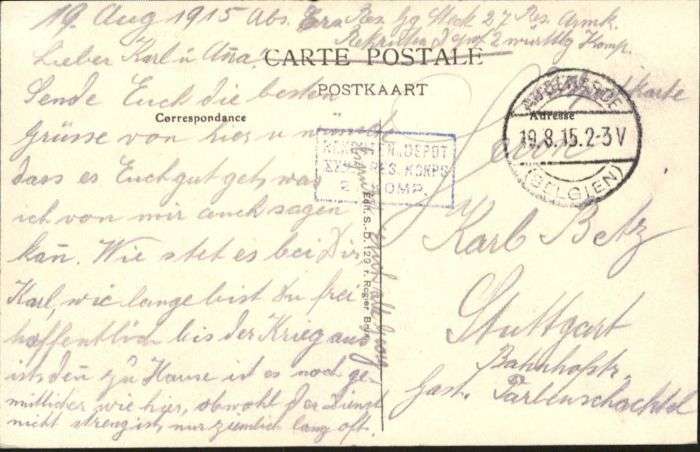 19. Aug 1915 Abs. Ers. Res. Hg Stock 27 Res. Armk.
Rekruten Depot 2 württbg Komp.
CARTE POSTALE
POSTKAART
Correspondance
Adresse
Lieber Karl u Anna.
Sende Euch die besten
Grüsse von hier u wünsche
dass es Euch gut geht, was
ich von mir auch sagen
kann. Wie stet es bei Dir
Karl, wie lange bist Du frei
hoffentlich bis der Krieg aus
ist, den zu Hause ist es noch gemütlicher wie hier, obwohl der Dienst
nicht streng ist, nur ziemlich lang oft.
Euch alle
Roger
REKRUTEN DEPOT
RES. KORPS
2. KOMP.
19.8.15.2-3V
(BELGIEN)
Feldpostkarte
Herrn
Karl Betz
Stuttgart
Bahnhofstr.
Gast. Farbenschachtel